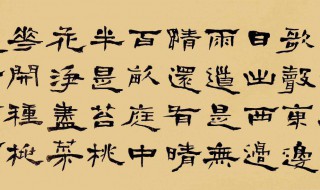 歌聲東邊
日出西邊
雨道是無
晴還有晴
百畝庭中
半是苔桃
花淨盡菜
華開種桃